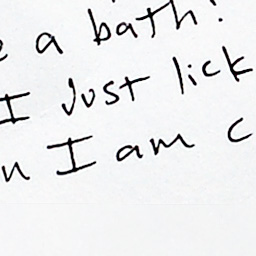 e a bath!
I Just lick
n I am c